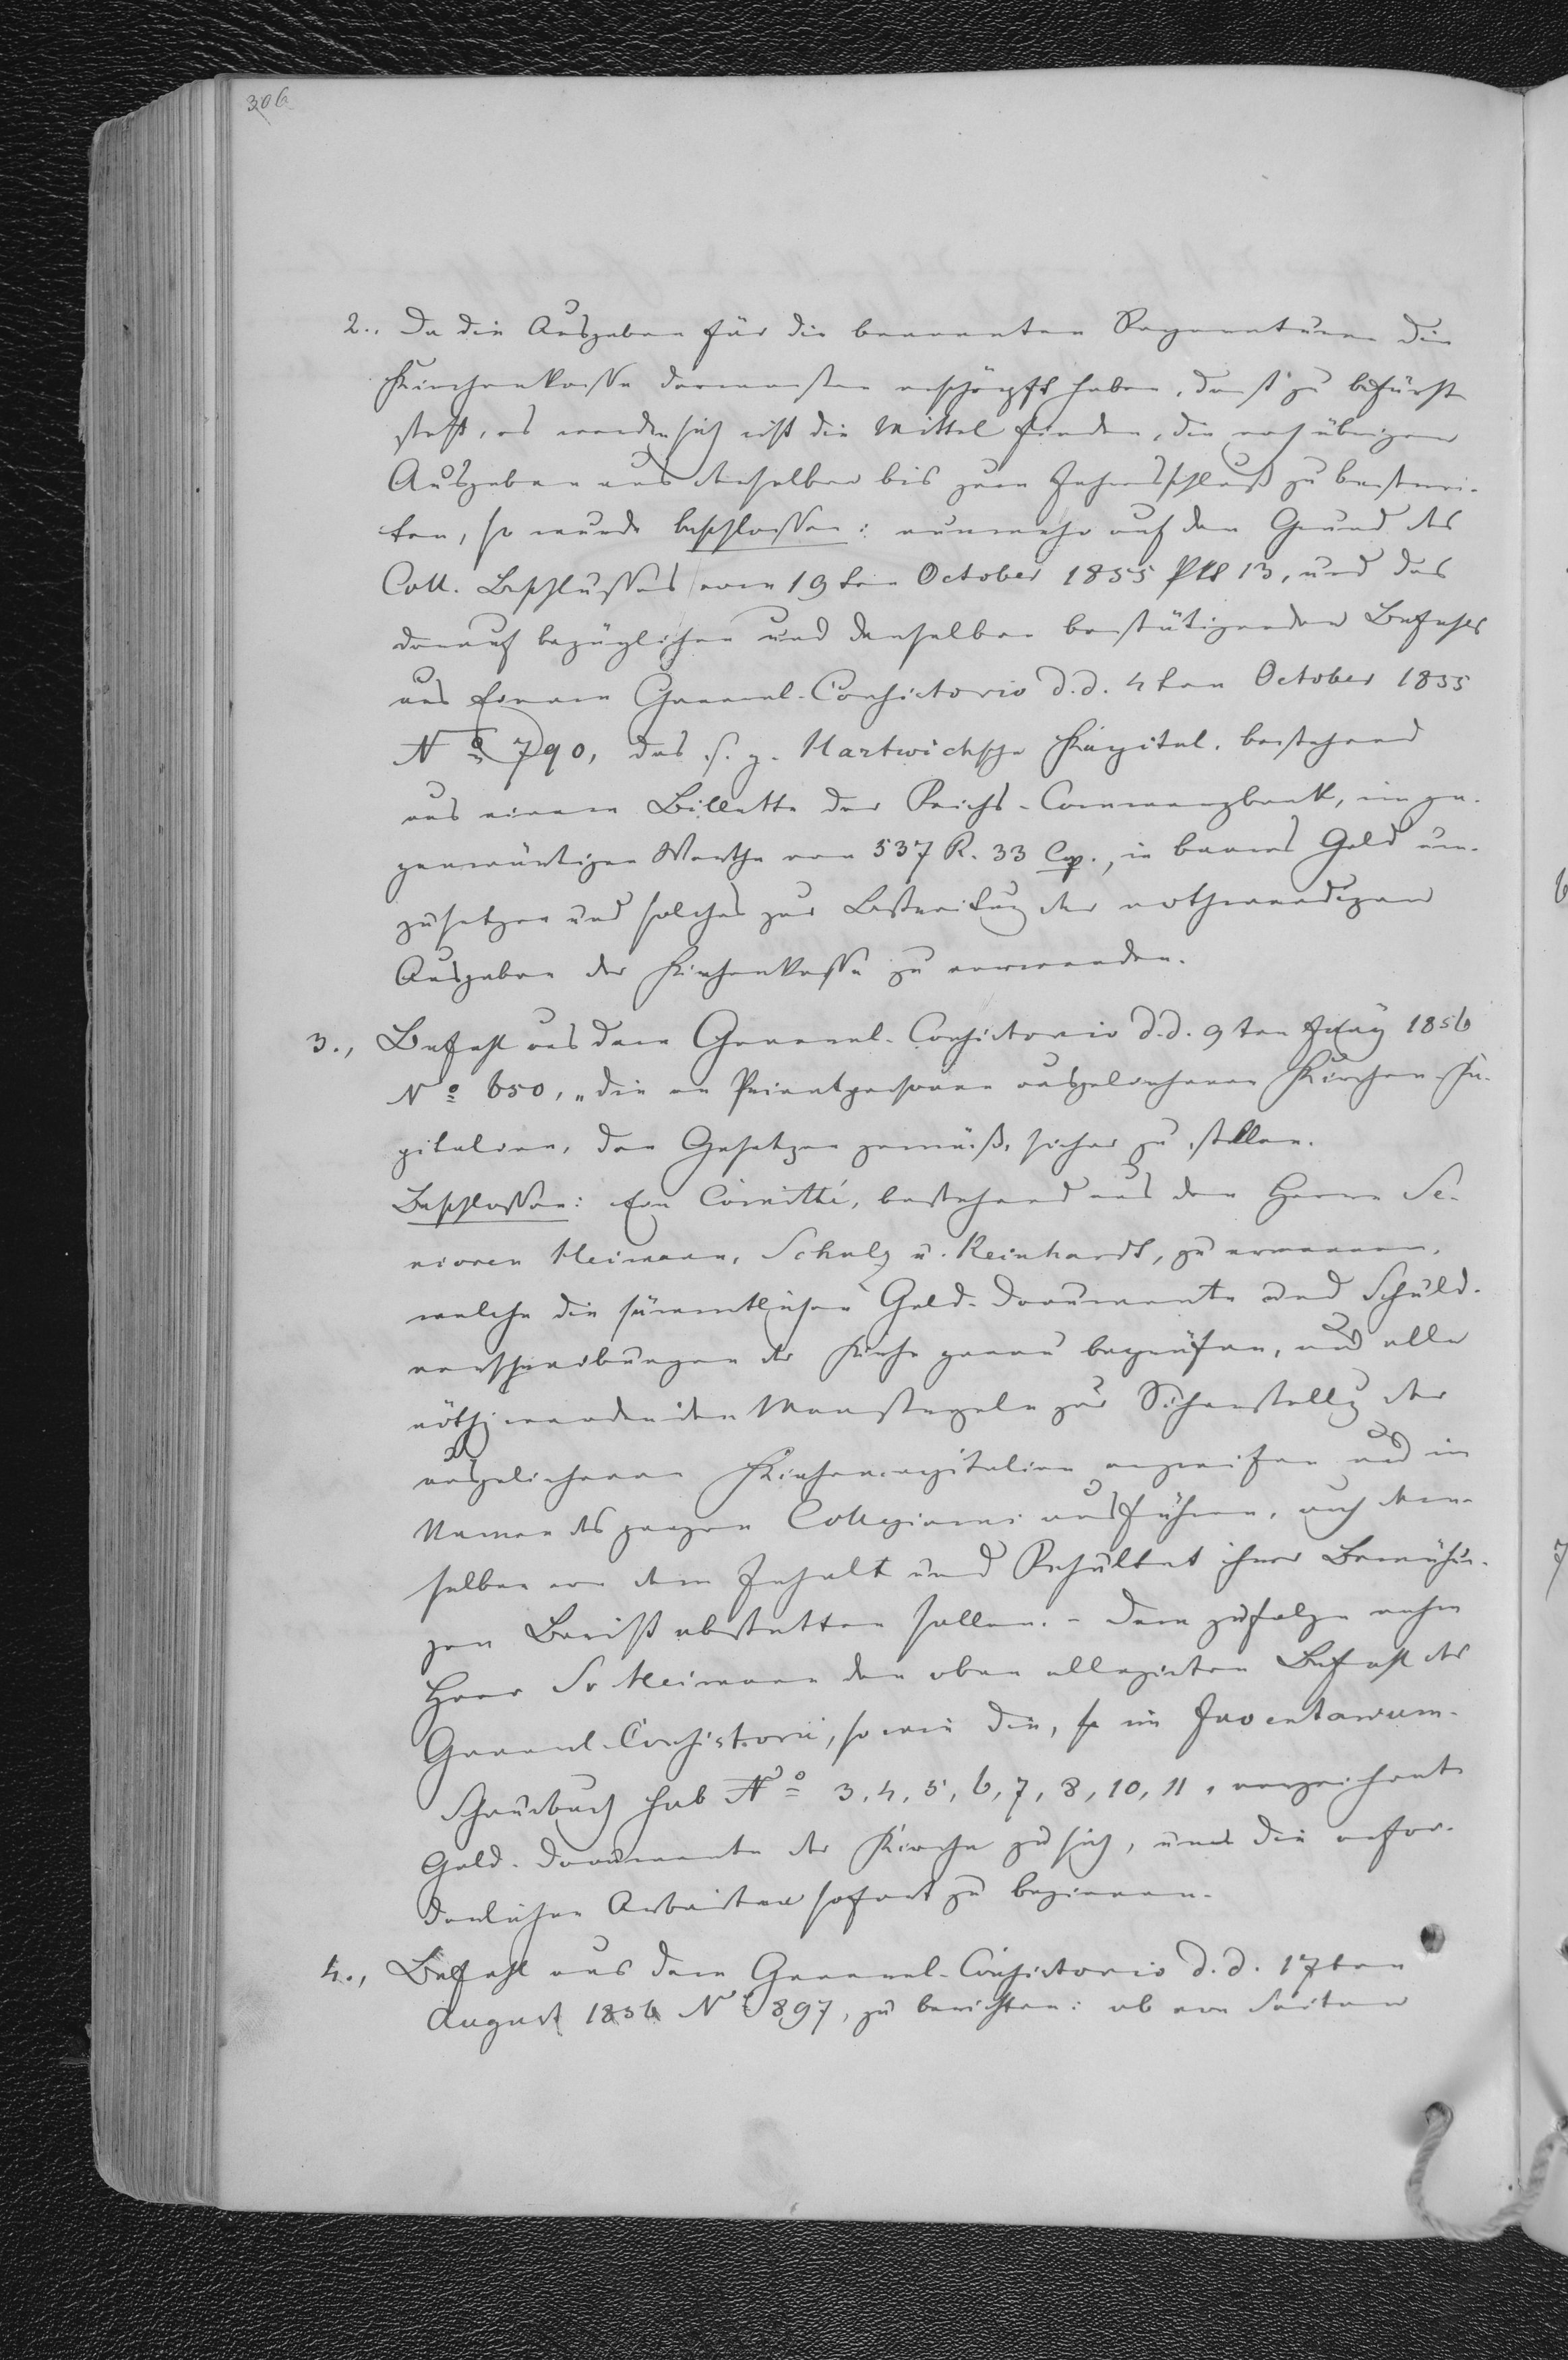 306
2., Da die Ausgaben für die benannten Reparaturen die
Kirchenkasse dermaßen erschöpft haben, daß zu befürch
steht, es werden sich nicht die Mittel finden, die noch übrigen
Ausgaben aus derselben bis zum Jahresschluß zu bestrei-
ten, so wurde beschlossen: nunmehr auf den Grund des
Coll. Beschlusses vom 19ten October 1855 Pkt 13, und des
darauf bezüglichen und denselben bestätigenden Befehls
aus Einem General-Consistorio d. d. 4ten October 1855
No 790, das s. g. Hartwichsche Kapital, bestehend
aus einem Billette der Reichs-Commerzbank, im ge-
genwärtigen Werthe von 537 R. 33 Cop., in baares Geld um-
zusetzen und solches zur Bestreitung der nothwendigen
Ausgaben der Kirchenkasse zu verwenden.
3., Befehl aus dem General-Consistorio d. d. 9ten 1856
No 650, „die an Privatpersonen ausgeliehenen Kirchen-Ka-
pitalien, den Gesetzen gemäß, sicher zu stellen.
Beschlossen: Ein Comitté, bestehend aus den Herrn Se-
nioren Heimann, Schulz u. Reinhardt, zu ernennen,
welche die sämmtlichen Geld-Documente und Schuld-
verschreibungen der Kirche genau beprüfen, und alle
nöthig werdenden Maasregeln zur Sicherstellung der
ausgeliehenen Kirchencapitalien ergreifen und im
Namen des ganzen Collegiums ausführen, auch dem-
selben von dem Inhalt und Resultat ihrer Bemühun-
gen Bericht abstatten sollen. - Dem zufolge nahm
Herr Sr Heimann den oben allegirten Befehl des
General-Consistorii, so wie die, im Inventarium-
Schnurbuch sub No 3, 4, 5, 6, 7, 8, 10, 11, verzeichnete
Geld-Documente der Kirche zu sich, um die erfor-
derlichen Arbeiten sofort zu beginnen.
4., Befehl aus dem General-Consistorio d. d. 17ten
August 1856 No 897, zu berichten: ob von Seiten